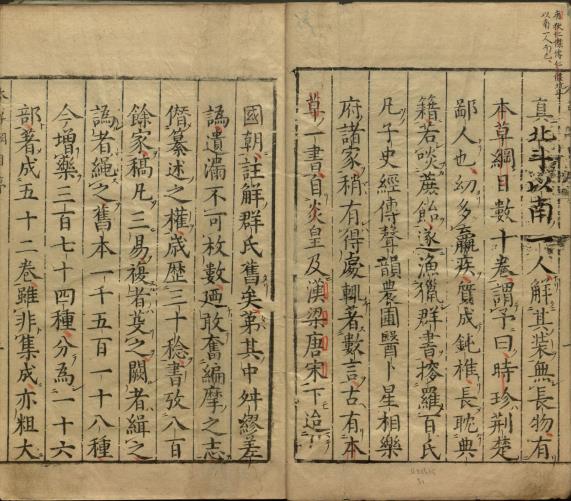 真北斗以南一人解其装無長物有
本草綱目數十卷謂予曰時珍荆楚
鄙人也幼多羸疾質成鈍椎長耽典
籍若啖蔗飴遂漁獵群書搜羅百氏
凡子史經傳聲韻農圃醫卜星相樂
府諸家稍有得處輙著數言古有本
草一書自炎皇及漢梁唐宋下迨
國朝註解群氏舊矣第其中舛繆差
譌遺漏不可枚數廼敢奮編摩之志
僭纂述之權歳歷三十稔書攷八百
餘家稿凡三易複者芟之闕者緝之
譌者繩之舊本一千五百一十八種
今增藥三百七十四種分為一十六
部著成五十二卷雖非集成亦粗大